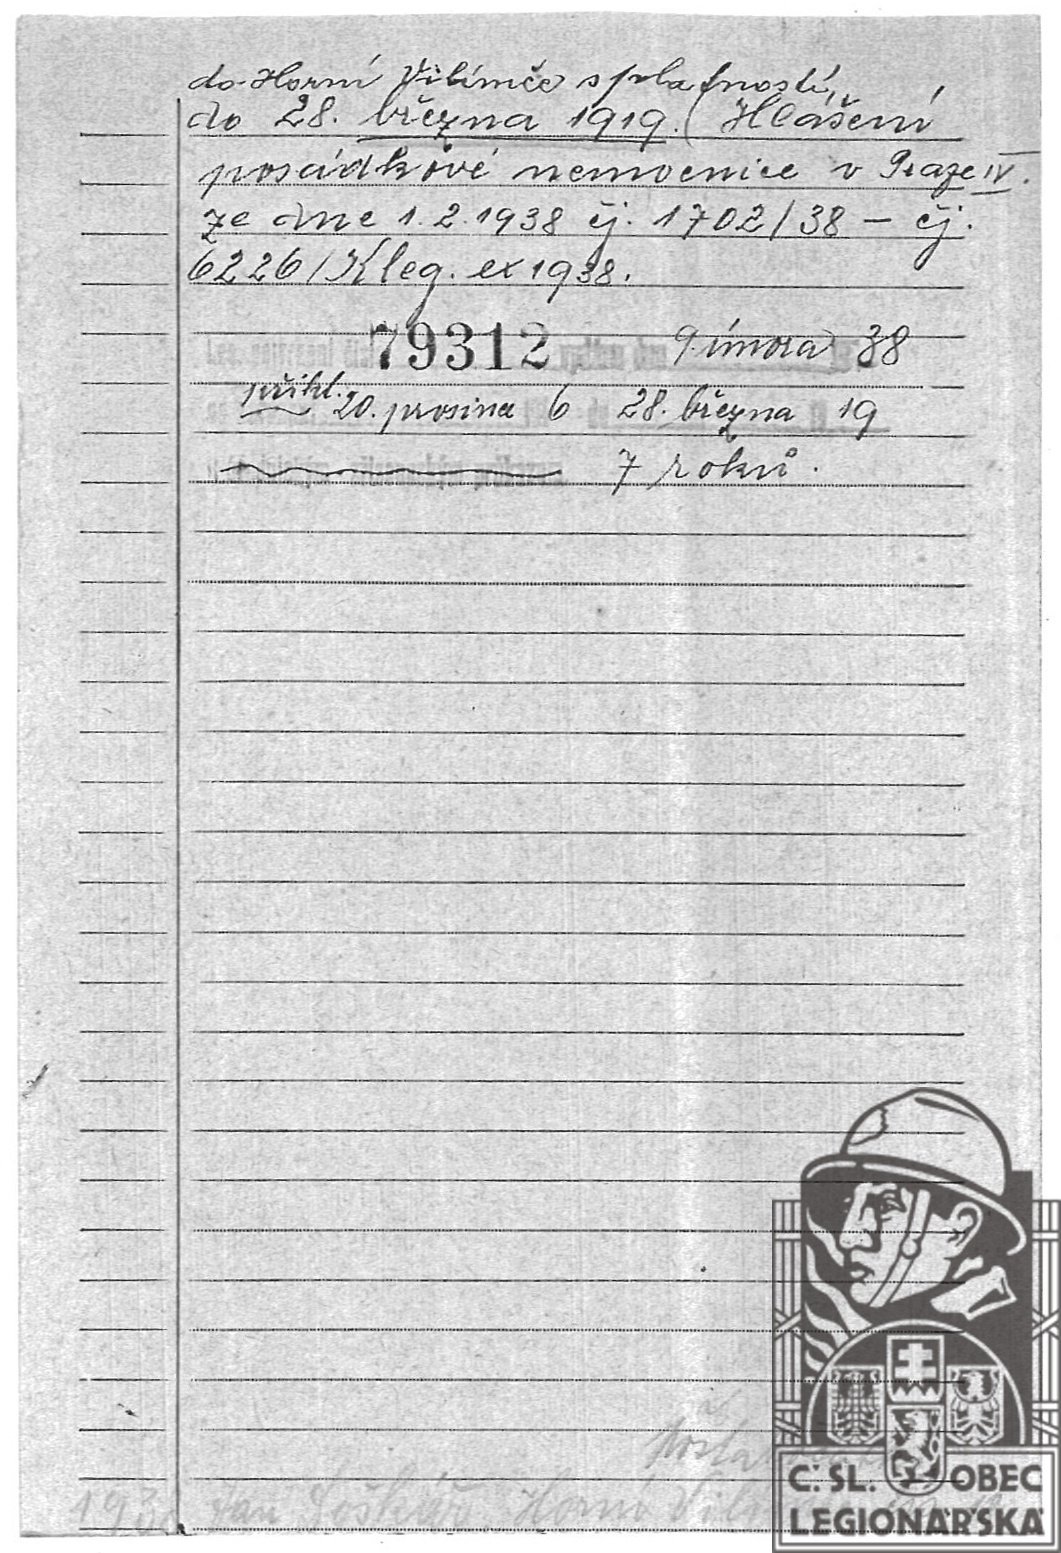 do Horní Vilímče s platností
do 28. března 1919. (Hlášení
posádkové nemocnice v Praze IV.
ze dne 1.2.1938 čj. 1702/38 – čj.
6226/Kleg. ex 1938.
79312 9 února 38
přihl. 20. prosince 6 28. března 19
7 roků.
Jan Horní
Č. SL. OBEC
LEGIONÁŘSKÁ